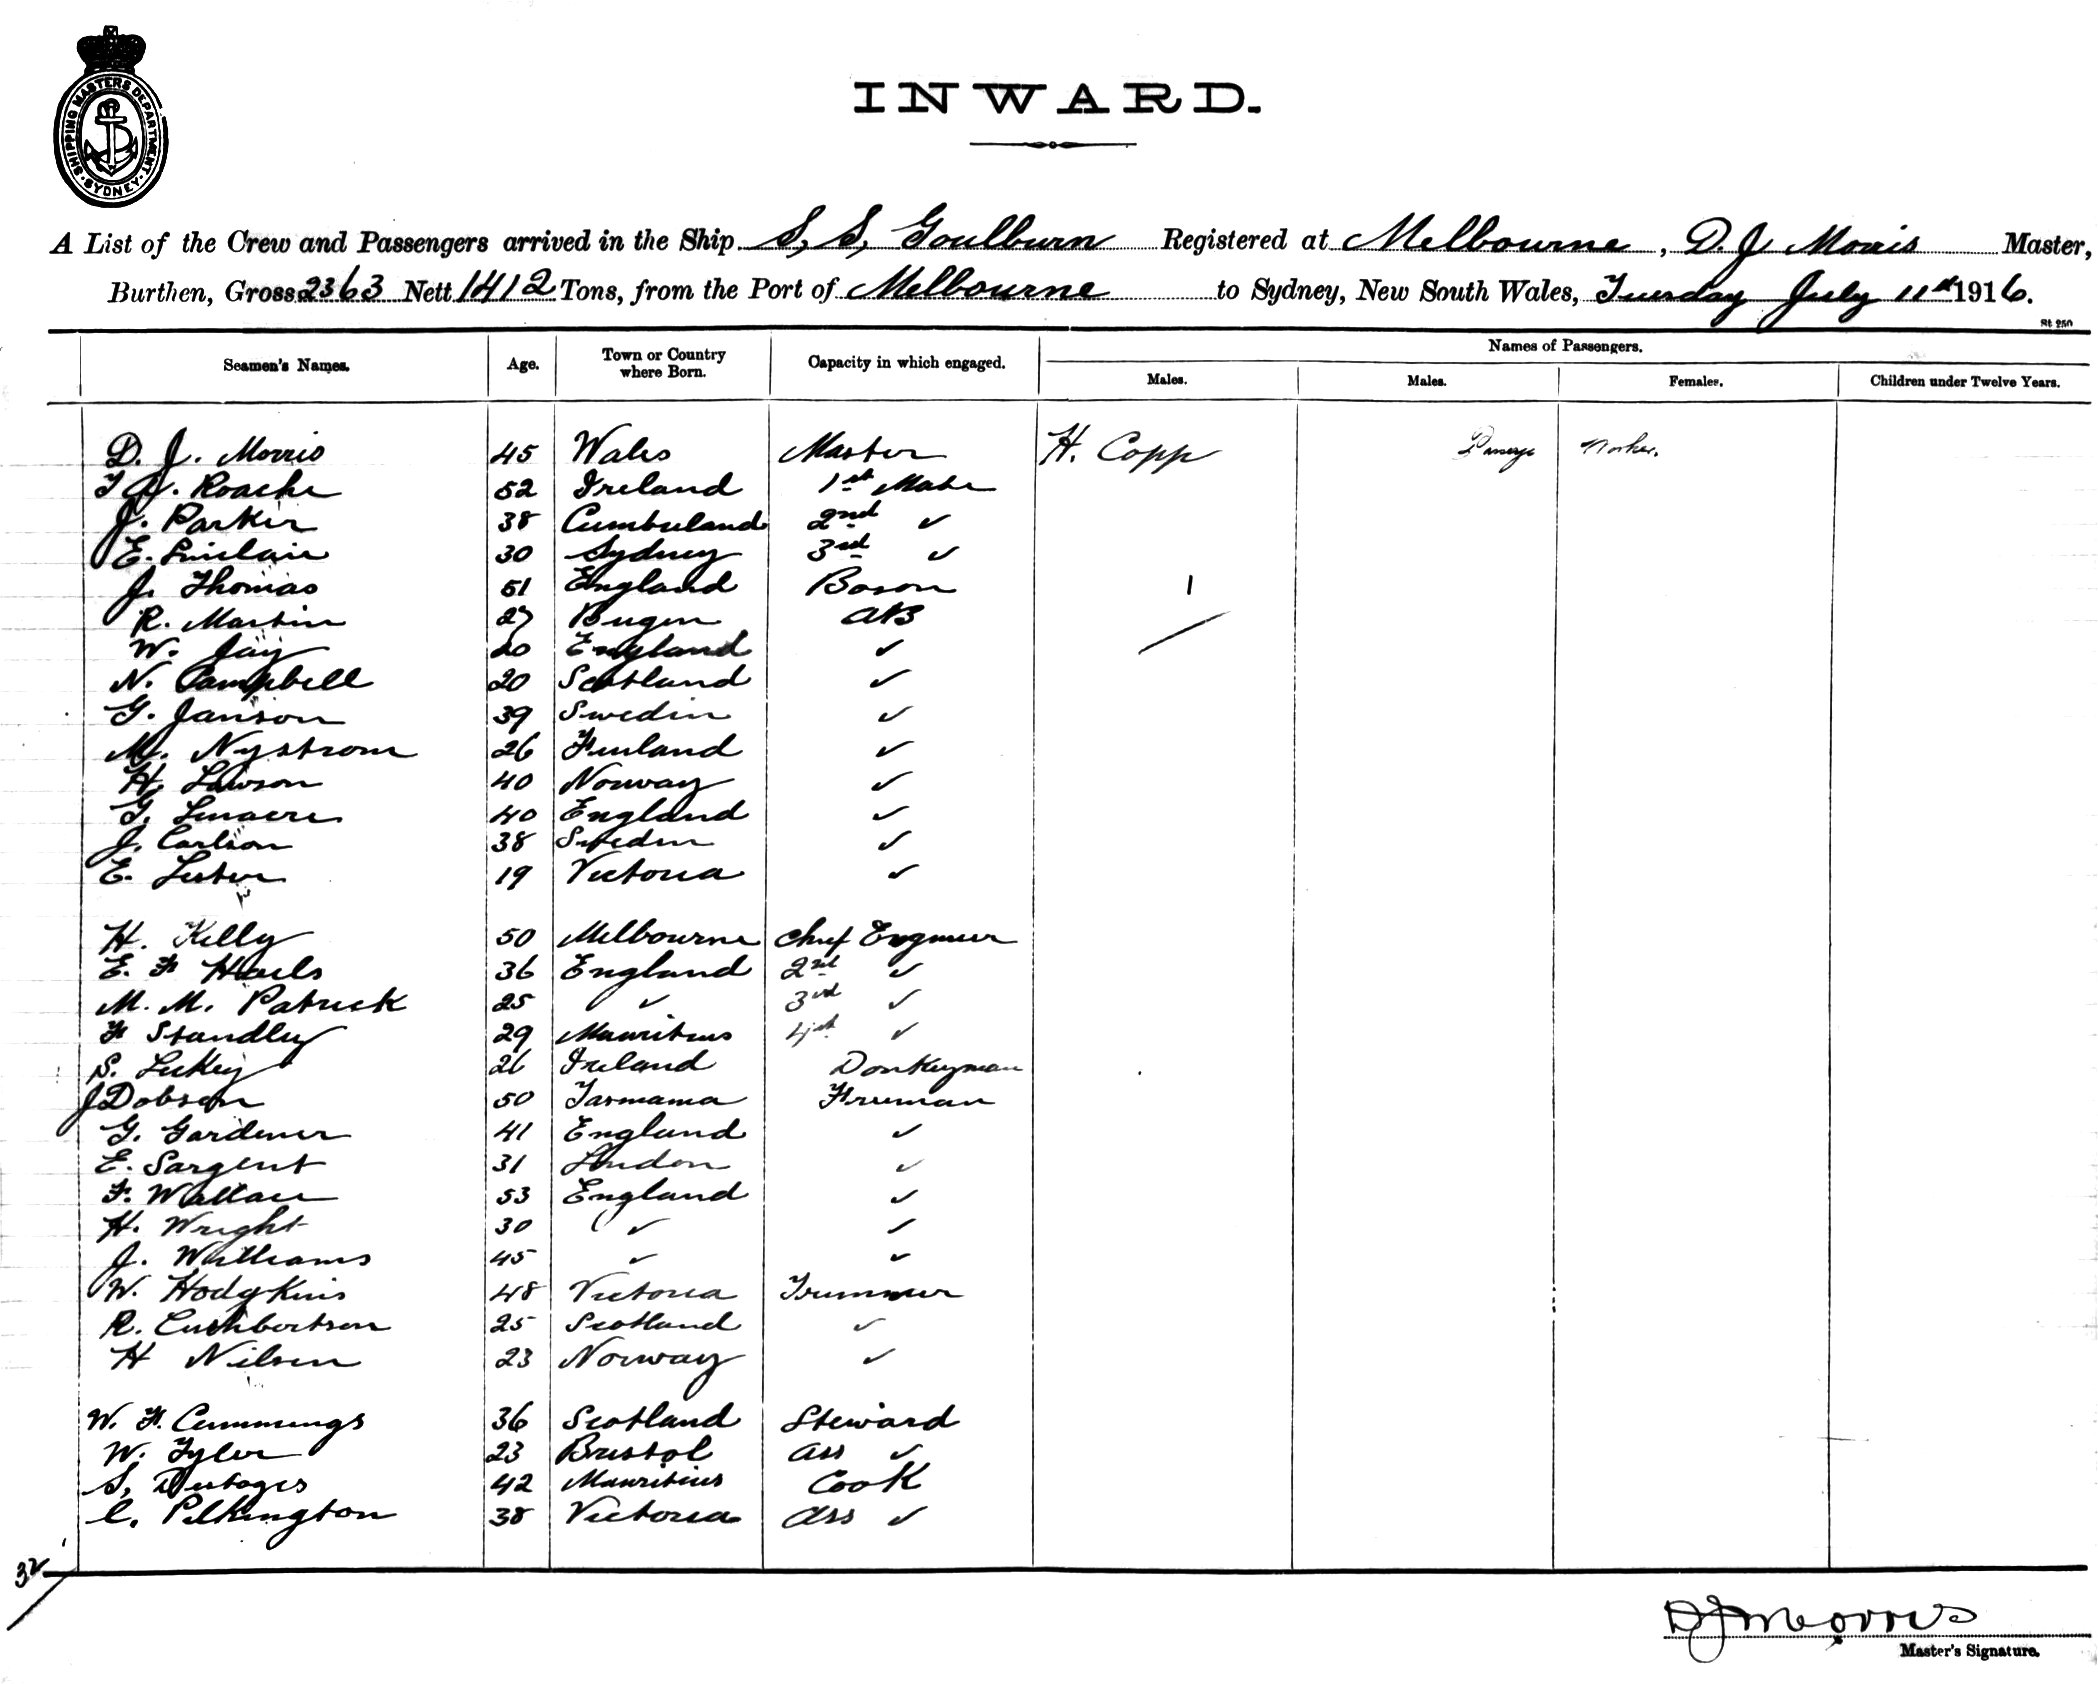 SHIPPING MASTERS DEPARTMENT
SYDNEY
INWARD.
A List of the Crew and Passengers arrived in the Ship S, S, Goulburn Registered at Melbourne, D. J. Morris Master,
Burthen, Gross 2363 Nett 1412 Tons, from the Port of Melbourne to Sydney, New South Wales, Tuesday July 11th 1916.
St. 250
Seamen's Names. Age. Town or Country where Born. Capacity in which engaged. Names of Passengers.
Males. Males. Females. Children under Twelve Years.
D. J. Morris 45 Wales Master H. Copp
Roache 52 Ireland 1st Mate
J. Parker 38 Cumberland 2nd ✓
E. Sinclair 30 Sydney 3rd ✓
J. Thomas 51 England Boson 1
R. Martin 27 AB
W. Jay 20 England ✓
N. Campbell 20 Scotland ✓
G. Janson 39 Sweden ✓
M. Nystrom 26 Finland ✓
H. Lawson 40 Norway ✓
G. Linacre 40 England ✓
J. Carlson 38 Sweden ✓
E. Lester 19 Victoria ✓
H. Kelly 50 Melbourne Chief Engineer
E. F. 36 England 2nd ✓
M. M. Patrick 25 ✓ 3rd ✓
F Standley 29 Mauritius 4th ✓
S. Leckey 26 Ireland Donkeyman
J Dobson 50 Tasmania Fireman
G. Gardener 41 England ✓
E. Sargent 31 London ✓
F. Wallace 53 England ✓
H. Wright 30 ✓ ✓
J. Williams 45 ✓ ✓
W. Hodgkins 48 Victoria Trimmer
R. Cuthbertson 25 Scotland ✓
H Nilsen 23 Norway ✓
W. F. Cummings 36 Scotland Steward
W. Tyler 23 Bristol Ass ✓
S. 42 Mauritius Cook
C. Pilkington 38 Victoria Ass ✓
32
D J Morris
Master's Signature.